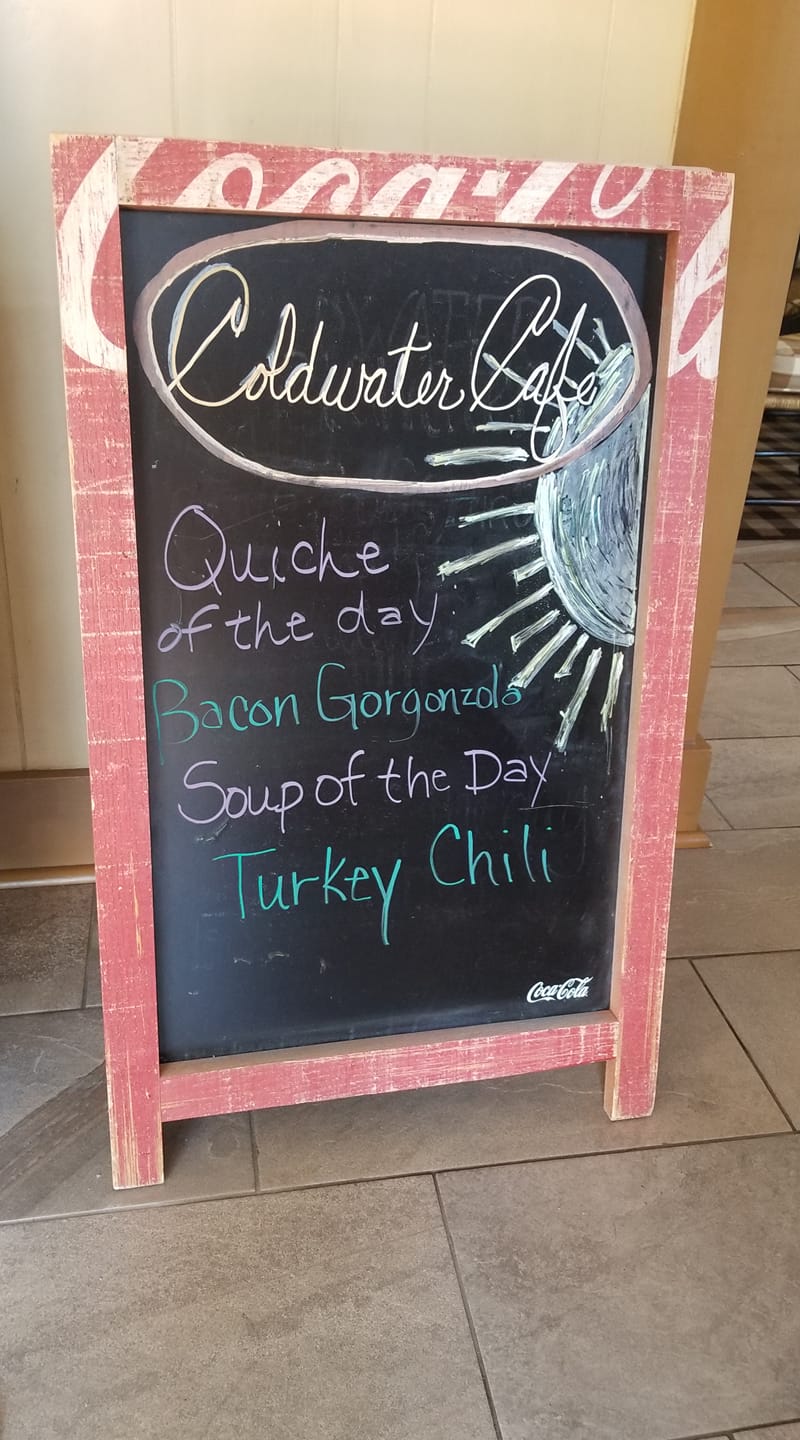 Coca-Cola
Coldwater Cafe
Quiche
of the day
Bacon Gorgonzola
Soup of the Day
Turkey Chili
Coca-Cola